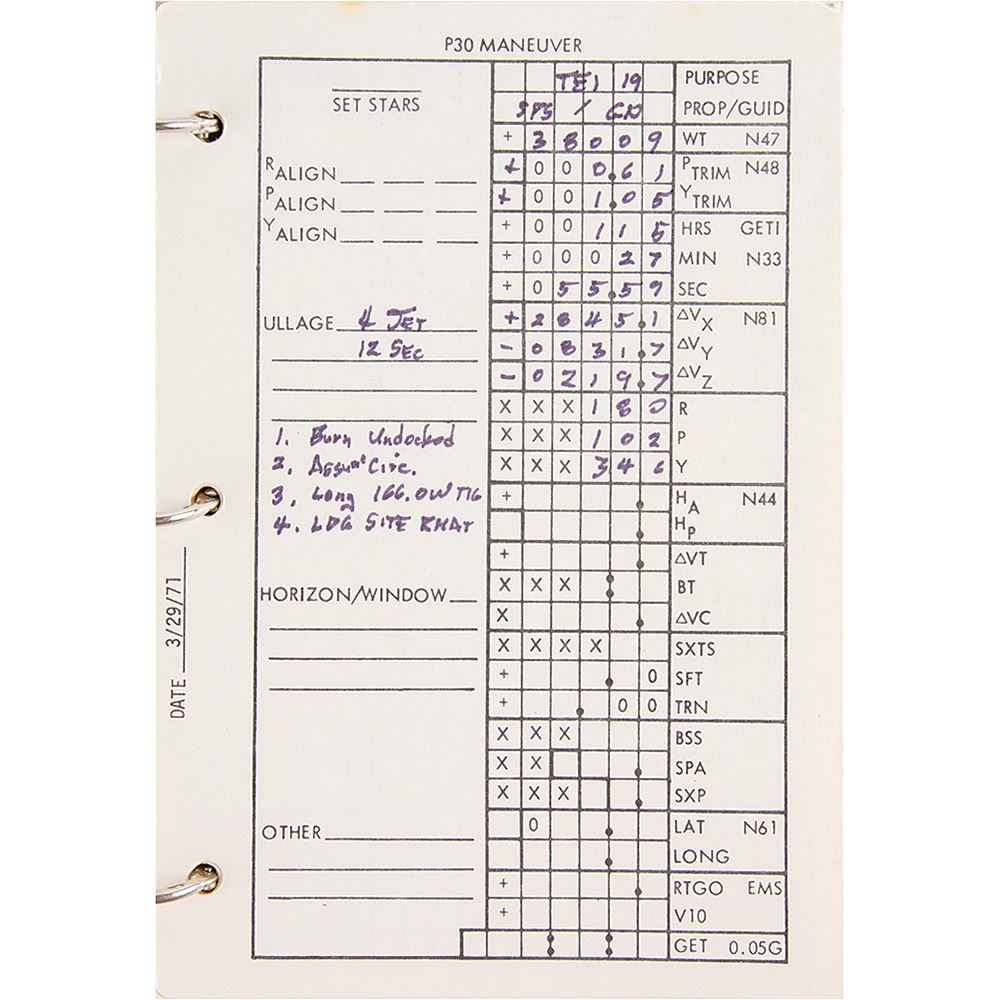 P30 MANEUVER
TEI 19 PURPOSE
SET STARS SPS / G&N PROP/GUID
+ 3 8 0 0 9 WT N47
R ALIGN + 0 0 0.6 1 P TRIM N48
P ALIGN + 0 0 1.0 5 Y TRIM
Y ALIGN + 0 0 1 1 5 HRS GETI
+ 0 0 0 2 7 MIN N33
+ 0 5 5.5 9 SEC
ULLAGE 4 JET + 2 8 4 5.1 ΔVX N81
12 SEC - 0 8 3 1.7 ΔVY
- 0 2 1 9.7 ΔVZ
X X X 1 8 0 R
1. Burn Undocked X X X 1 0 2 P
2. Assum' Circ. X X X 3 4 6 Y
3. Long 166.0W TIG + . HA N44
4. LDG SITE RMAT . HP
+ . ΔVT
HORIZON/WINDOW X X X : BT
X . ΔVC
X X X X SXTS
+ . 0 SFT
+ . 0 0 TRN
X X X BSS
X X . SPA
X X X . SXP
OTHER 0 . LAT N61
. LONG
+ . RTGO EMS
+ V10
: : GET 0.05G
DATE 3/29/71